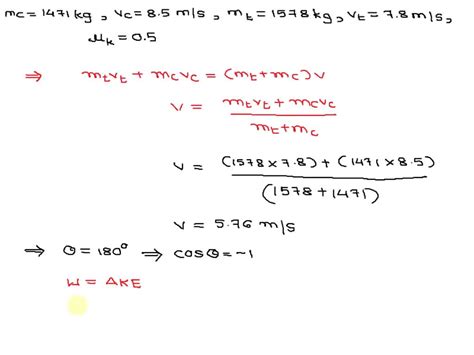 mc = 1471 kg , vc = 8.5 m/s , mt = 1578 kg, vt = 7.8 m/s,
μk = 0.5
⇒ mtvt + mcvc = (mt+mc) v
v = mtvt + mcvc / mt+mc
v = (1578 x 7.8) + (1471 x 8.5) / (1578 + 1471)
v = 5.76 m/s
⇒ θ = 180° ⇒ cosθ = -1
W = ΔKE